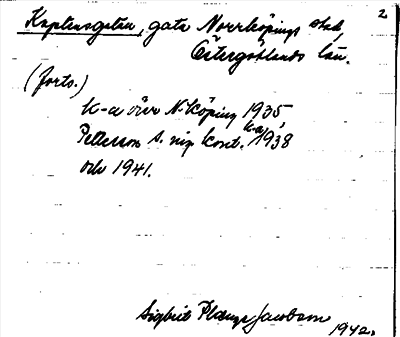 2
Kaptensgatan, gata Norrköpings stad,
Östergötlands län.
(forts.)
K-a över N-köping 1935,
Petterson s. nip kont. k-a 1938
och 1941.
Sigbrit Plænge Jacobson
1942.